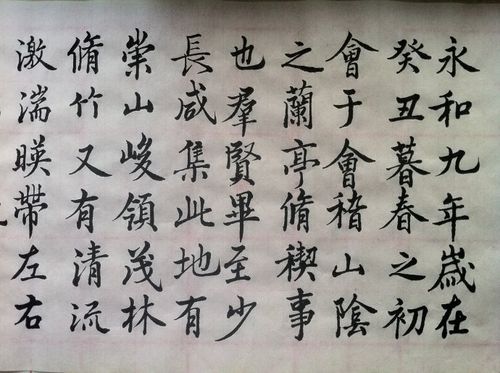 永和九年歲在
癸丑暮春之初
會于會稽山陰
之蘭亭脩稧事
也羣賢畢至少
長咸集此地有
崇山峻領茂林
脩竹又有清流
激湍暎帶左右